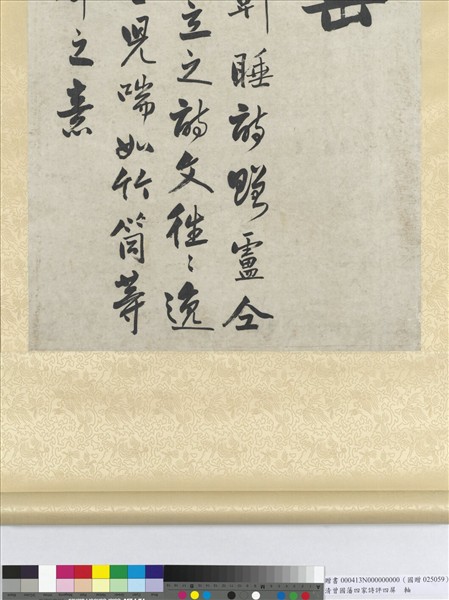 睡詩贈盧仝
立之詩文徃〻逸
兒喘如竹筒等
之素
贈書 000413N000000000（國贈 025059）
清曾國藩四家詩評四屏　軸